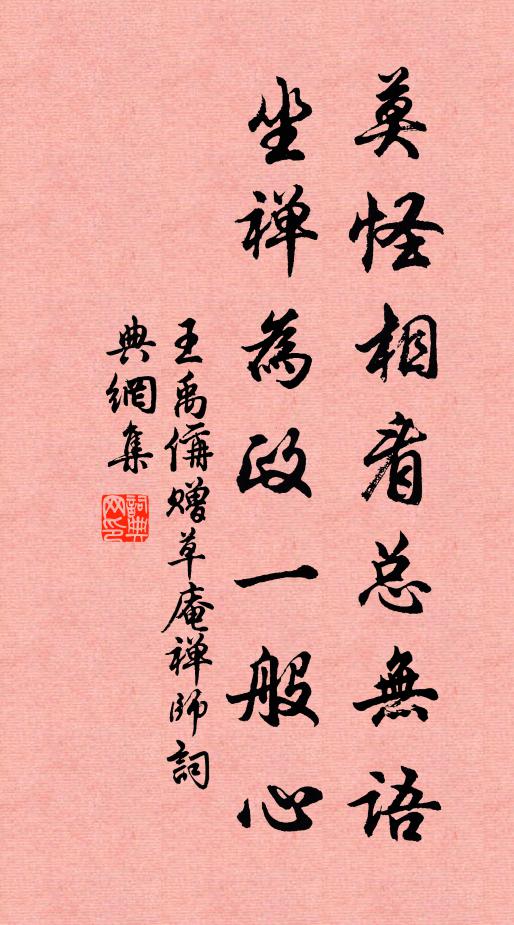 莫怪相看总無語
坐禅為政一般心
王禹偁赠草庵禅师詞
典網集
詞典网印